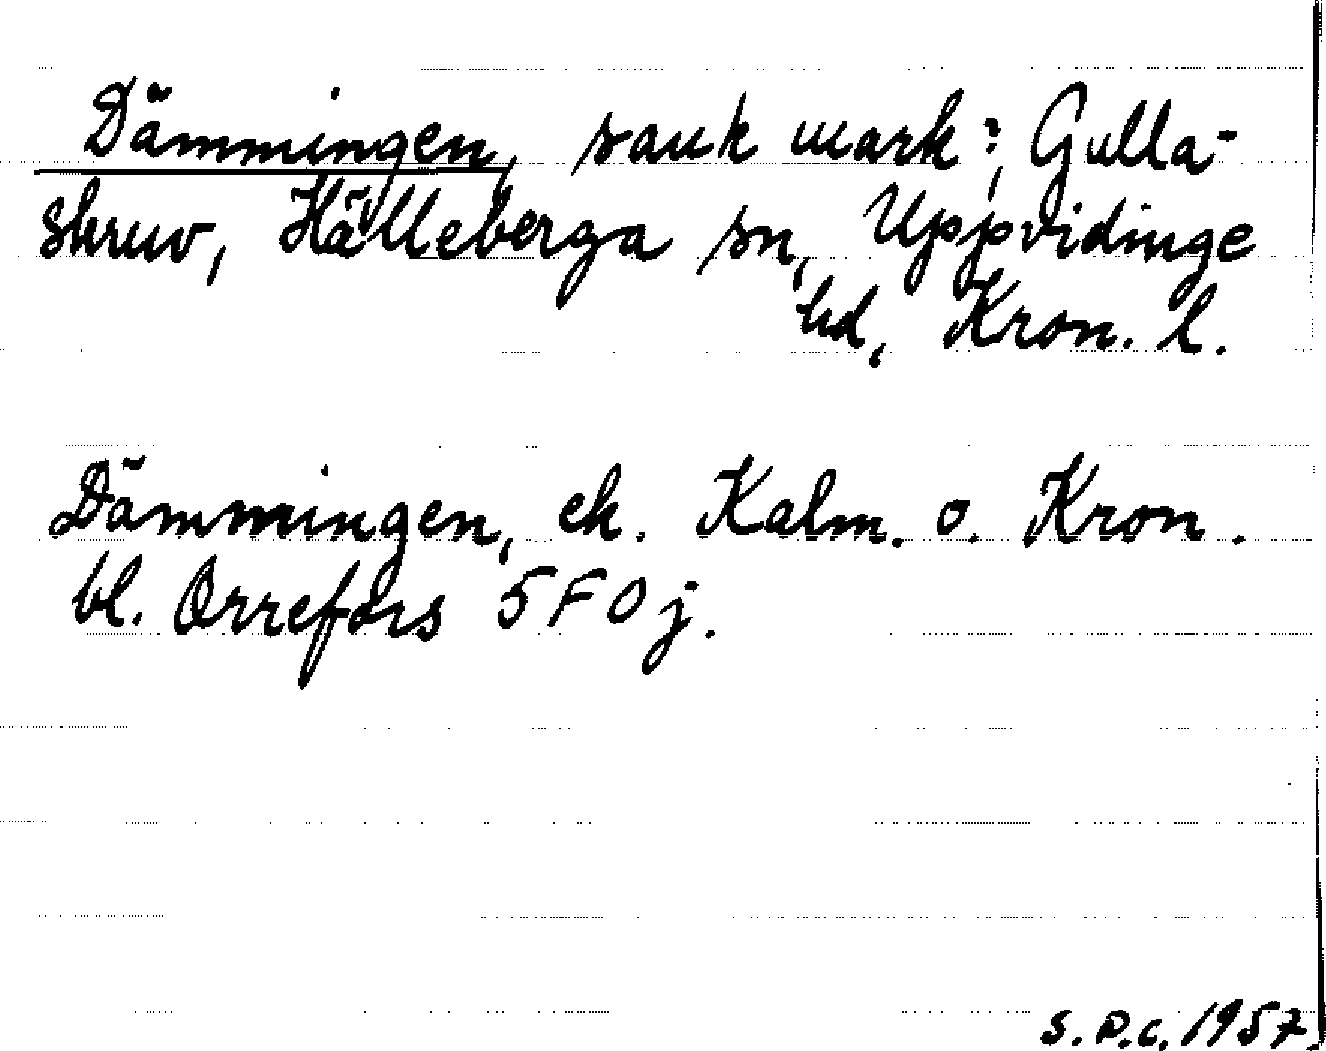 Dämmingen, sank mark; Gulla-
skruv, Hälleberga sn, Uppvidinge
hd, Kron. l.
Dämmingen, ek. Kalm. o. Kron.
bl. Orrefors 5F0j.
S.D.C. 1957